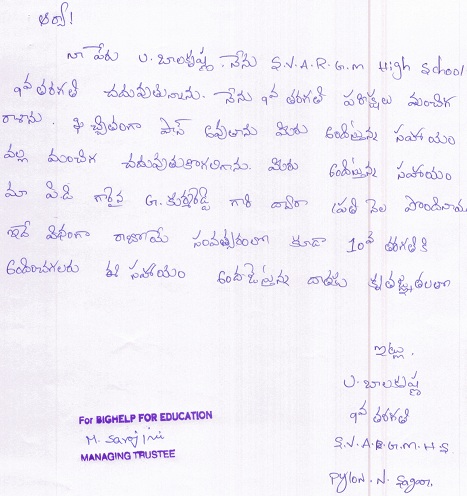 ఆర్యా!
నా పేరు U. బాలకృష్ణ. నేను S.V.A.R.G.M High School
9వ తరగతి చదువుతున్నాను. నేను 9వ తరగతి పరీక్షలు మంచిగ
రాశాను. ఖచ్చితంగా పాస్ అవుతాను మీరు అందిస్తున్న సహాయం
వల్ల మంచిగ చదువుతుకొగలిగాను. మీరు అందిస్తున్న సహాయం
మా పి.డి గారైన G. కృష్ణారెడ్డి గారి ద్వారా ప్రతి నెల పొందినాను
ఇదే విధంగా రాబోయే సంవత్సరంలో కూడా 10వ తరగతికి
అందించగలరు ఈ సహాయం అందజేస్తున్న దాతకు కృతజ్ఞతలతో
ఇట్లు.
U. బాలకృష్ణ
9వ తరగతి
S.V.A.R.G.M.H.S
Pylon. N. Sagar.
For BIGHELP FOR EDUCATION
M. Sarojini
MANAGING TRUSTEE